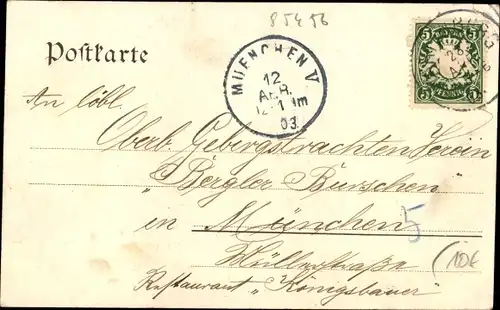 85456
Postkarte
MUENCHEN V
12
APR.
03
5 5
5 5
An löbl.
Oberb. Gebirgstrachten Verein
"Bergler Burschen"
in München 5
Müllerstraße
10€
Restaurant "Königsbauer"